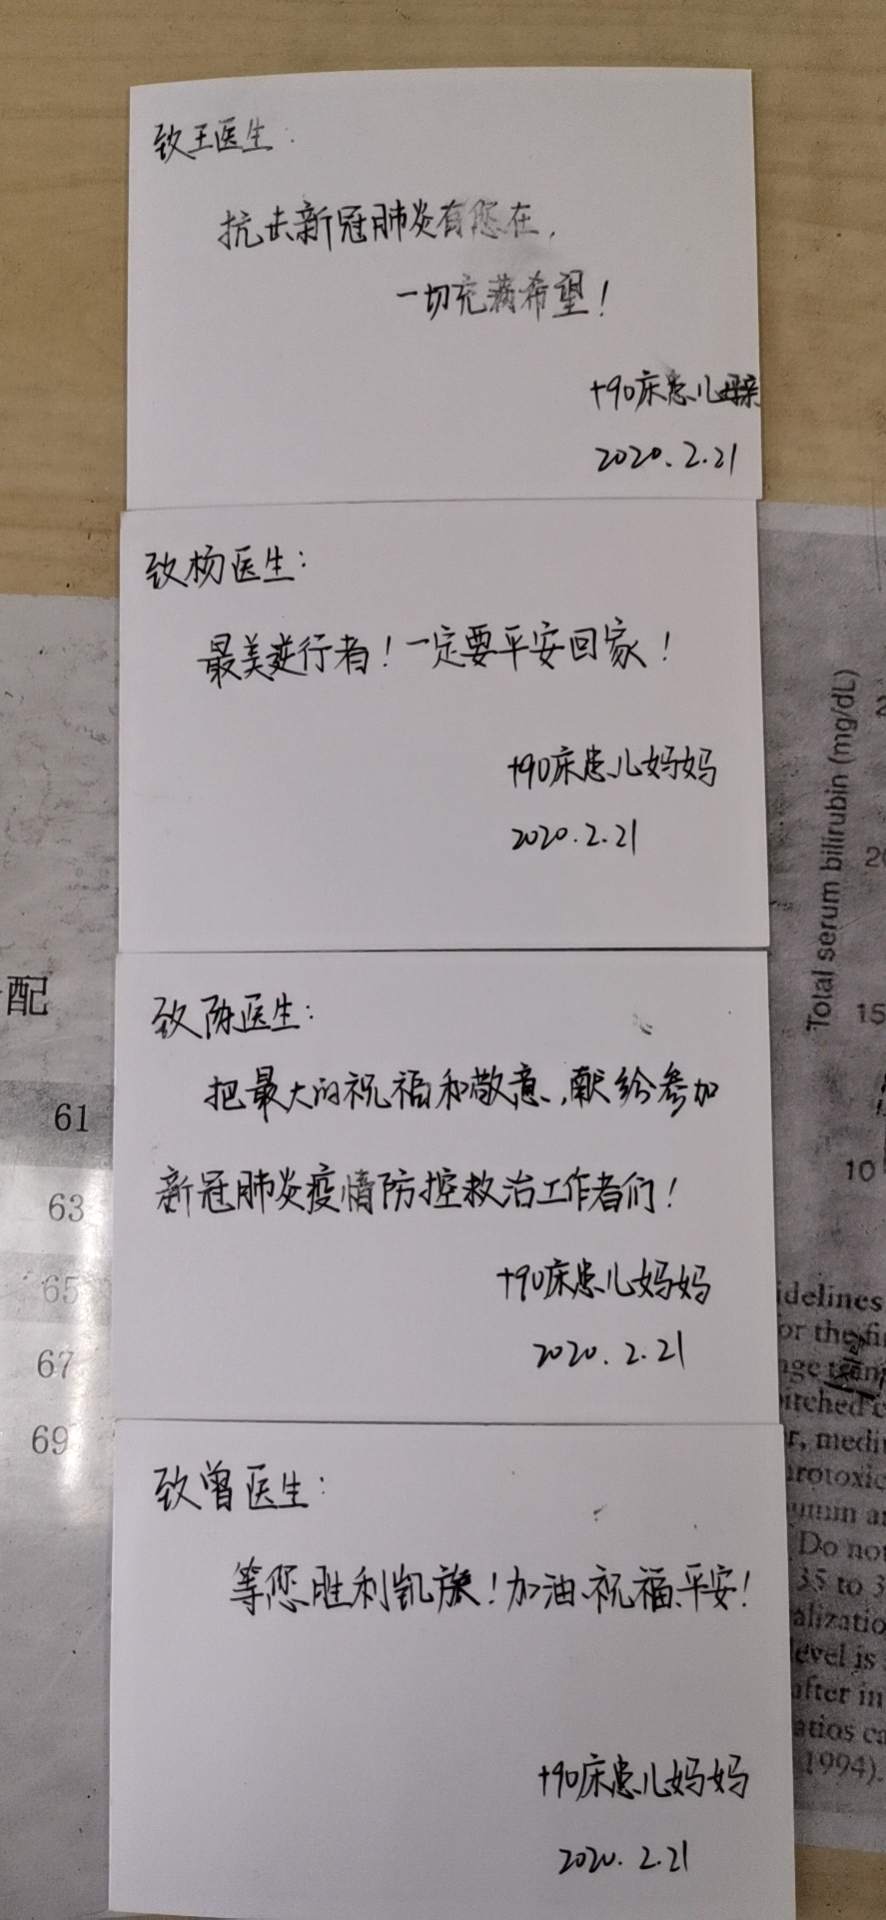 致王医生：
抗击新冠肺炎有您在，
一切充满希望！
+90床患儿母亲
2020.2.21
致杨医生：
最美逆行者！一定要平安回家！
+90床患儿妈妈
2020.2.21
致陈医生：
把最大的祝福和敬意，献给参加
新冠肺炎疫情防控救治工作者们！
+90床患儿妈妈
2020.2.21
致曾医生：
等您胜利凯旋！加油、祝福、平安！
+90床患儿妈妈
2020.2.21
配
61
63
65
67
69
Total serum bilirubin (mg/dL)
15
10
idelines
or the
1994).
Do not
35 to 3
level is
after in